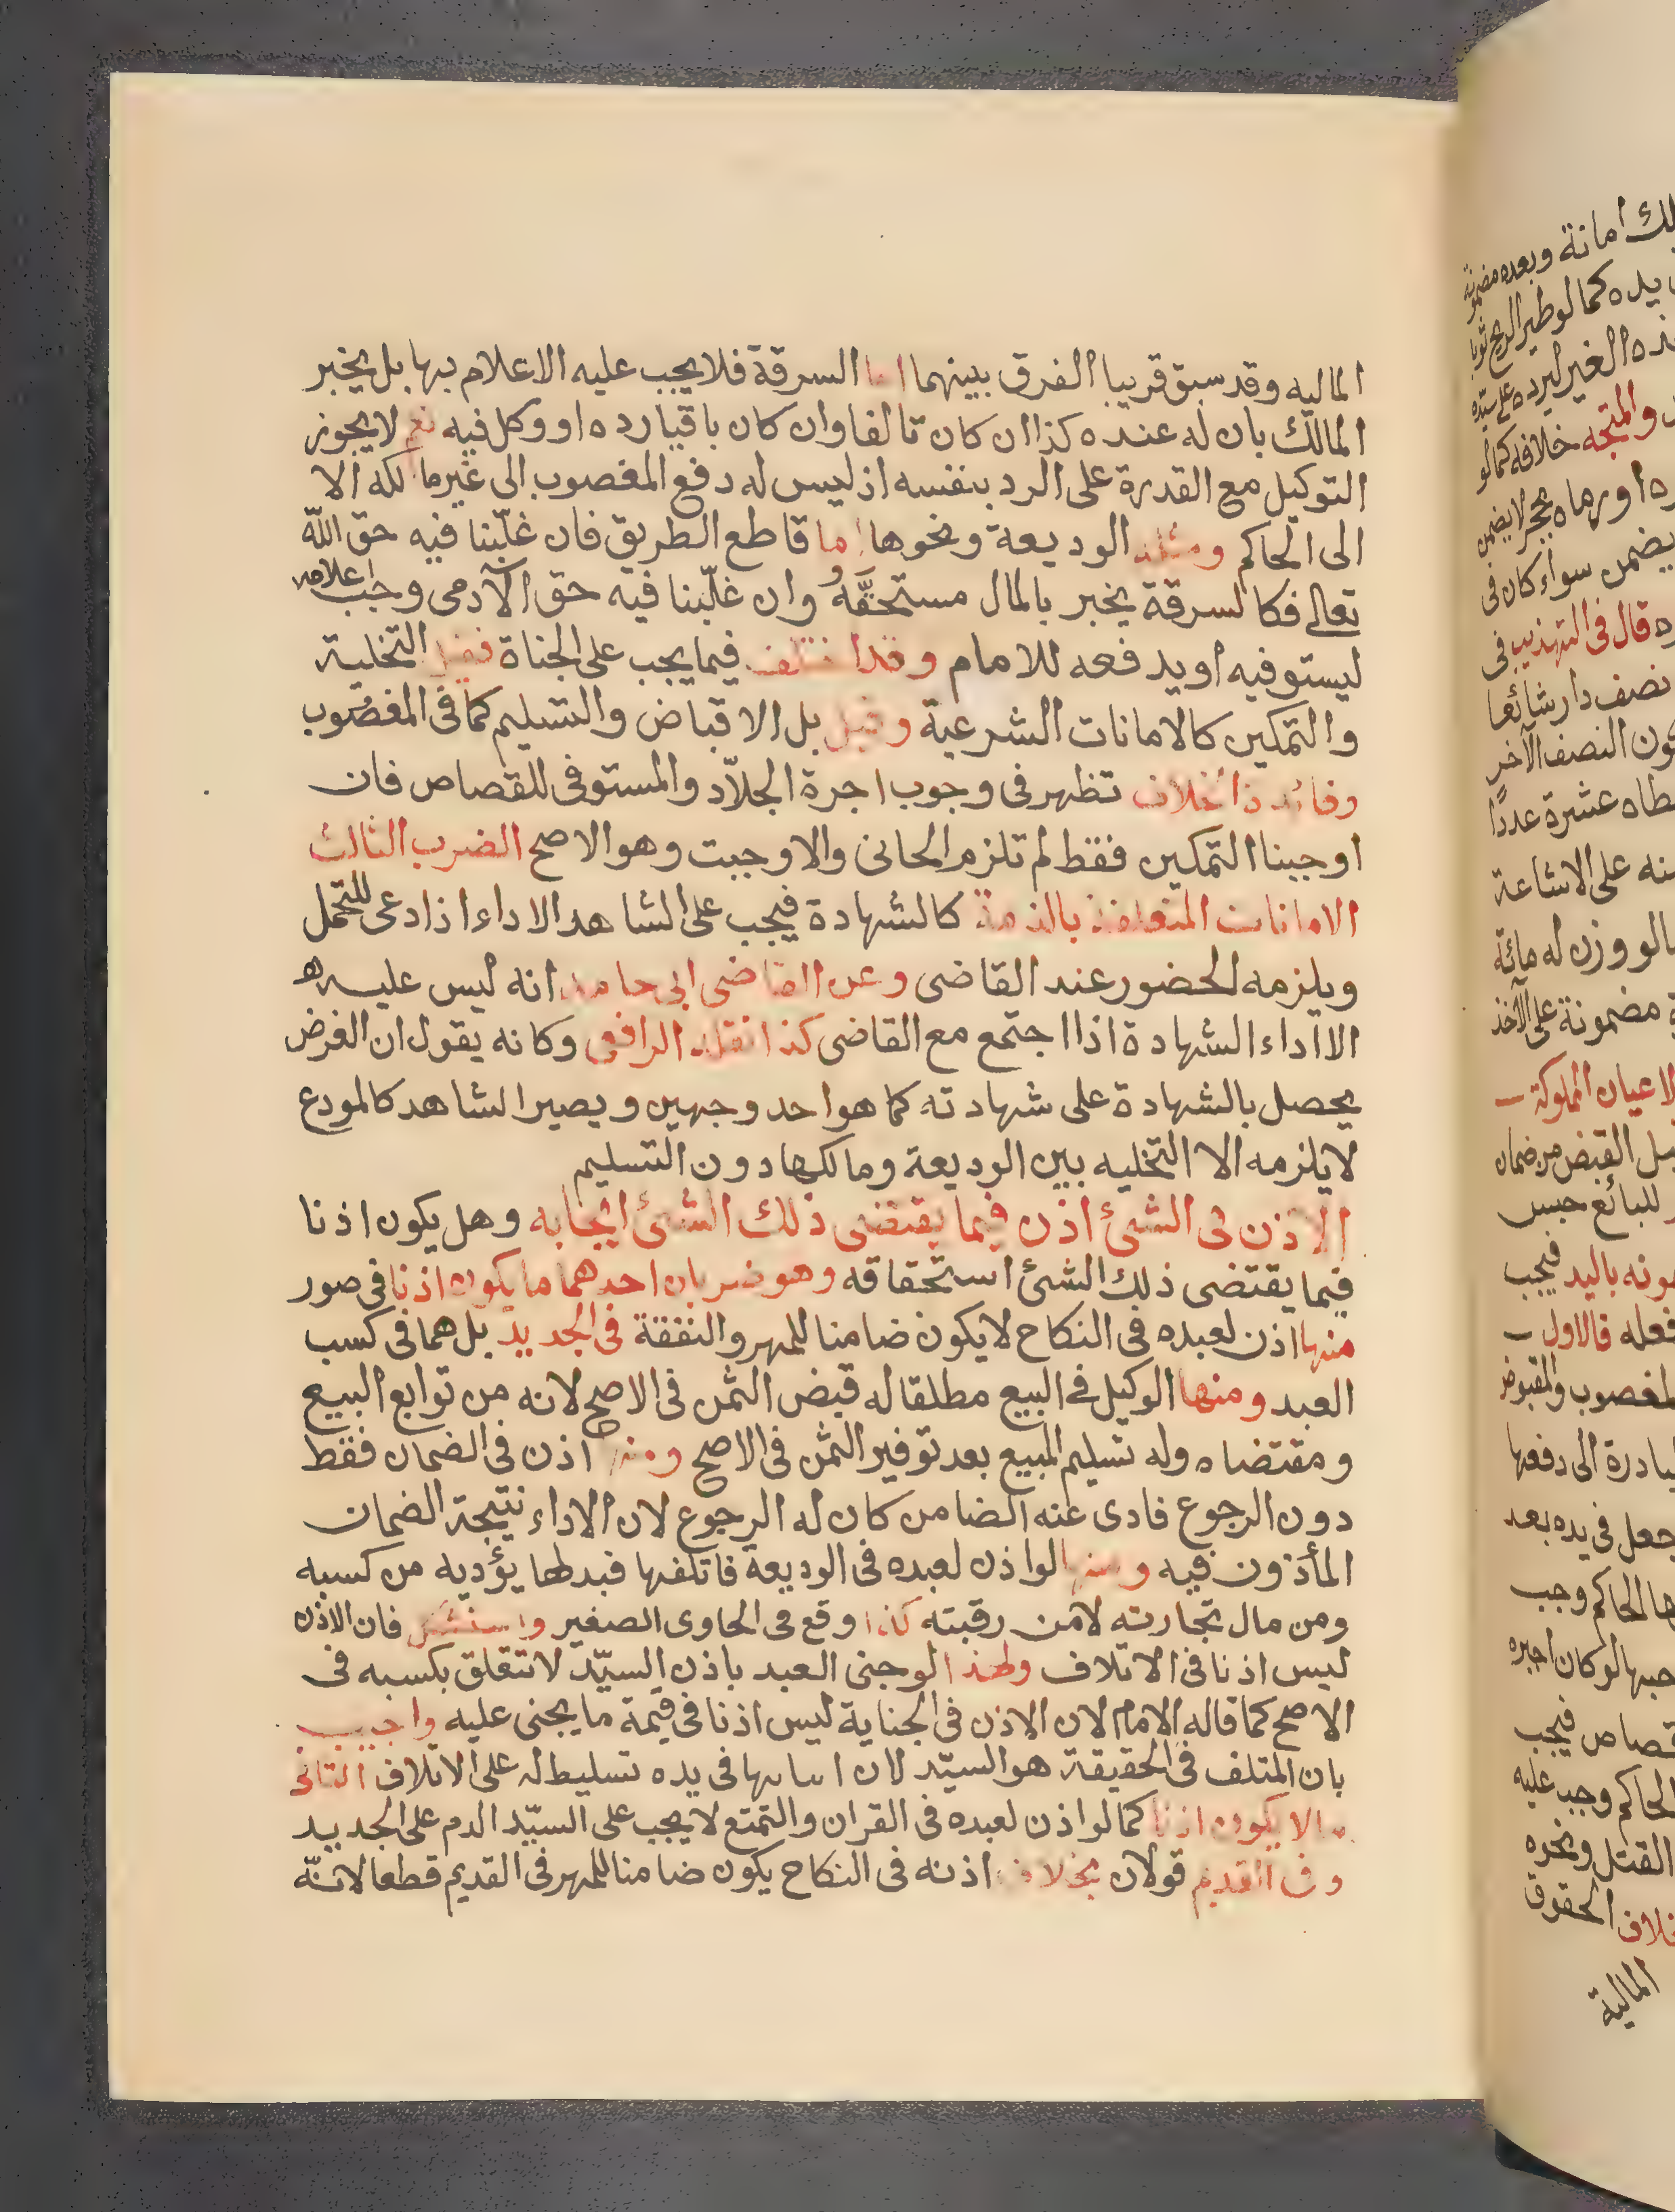 المالیه وقد سبق قریبا الفرق بینهما اما السرقة فلا یجب علیه الاعلام بها بل یخبر
المالك بان له عنده كذا ان كان تالفا وان كان باقیا رده او وكل فیه نعم لا یجوز
التوكیل مع القدرة علی الرد بنفسه اذ لیس له دفع المغصوب الی غیر مالكه الا
الی الحاكم ومثله الودیعة ونحوها اما قاطع الطریق فان غلّبنا فیه حق اللّه
تعالی فكالسرقة یخبر بالمال مستحقَّهُ وان غلّبنا فیه حق الآدمی وجب اعلامه
لیستوفیه او یدفعه للامام وقد اختلف فیما یجب علی الجناة فقیل التخلیة
والتمكین كالامانات الشرعیة وقیل بل الاقباض والتسلیم كما فی المغصوب
وفائدة الخلاف تظهر فی وجوب اجرة الجلاّد والمستوفی للقصاص فان
اوجبنا التمكین فقط لم تلزم الجانی والا وجبت وهو الاصح الضرب الثالث
الامانات المتعلقة بالذمة كالشهادة فیجب علی الشاهد الاداء اذا دعی للتحمل
ویلزمه الحضور عند القاضی وعن القاضی ابی حامد انه لیس علیه
الا اداء الشهادة اذا اجتمع مع القاضی كذا نقله الرافعی وكانه یقول ان الفرض
یحصل بالشهادة علی شهادته كما هو احد وجهین ویصیر الشاهد كالمودع
لا یلزمه الا التخلیه بین الودیعة ومالكها دون التسلیم
الاذن فی الشئ اذن فیما یقتضی ذلك الشئ ایجابه وهل یكون اذنا
فیما یقتضی ذلك الشئ استحقاقه وهو ضربان احدهما ما یكون اذنا فی صور
منها اذن لعبده فی النكاح لا یكون ضامنا للمهر والنفقة فی الجدید بل هما فی كسب
العبد ومنها الوكیل فی البیع مطلقا له قبض الثمن فی الاصح لانه من توابع البیع
ومقتضاه وله تسلیم المبیع بعد توفیر الثمن فی الاصح ومنها اذن فی الضمان فقط
دون الرجوع فادی عنه الضامن كان له الرجوع لان الاداء نتیجة الضمان
المأذون فیه ومنها لو اذن لعبده فی الودیعة فاتلفها فبدلها یؤدیه من كسبه
ومن مال تجارته لا من رقبته كذا وقع فی الحاوی الصغیر واستشكل فان الاذن
لیس اذنا فی الاتلاف ولهذا لو جنی العبد باذن السیّد لا تتعلق بكسبه فی
الاصح كما قاله الامام لان الاذن فی الجنایة لیس اذنا فی قیمة ما یجنی علیه واجیب
بان المتلف فی الحقیقة هو السیّد لان اثباتها فی یده تسلیط له علی الاتلاف الثانی
ما لا یكون اذنا كما لو اذن لعبده فی القران والتمتع لا یجب علی السیّد الدم علی الجدید
وفی القدیم قولان بخلاف اذنه فی النكاح یكون ضامنا للمهر فی القدیم قطعا لانّه